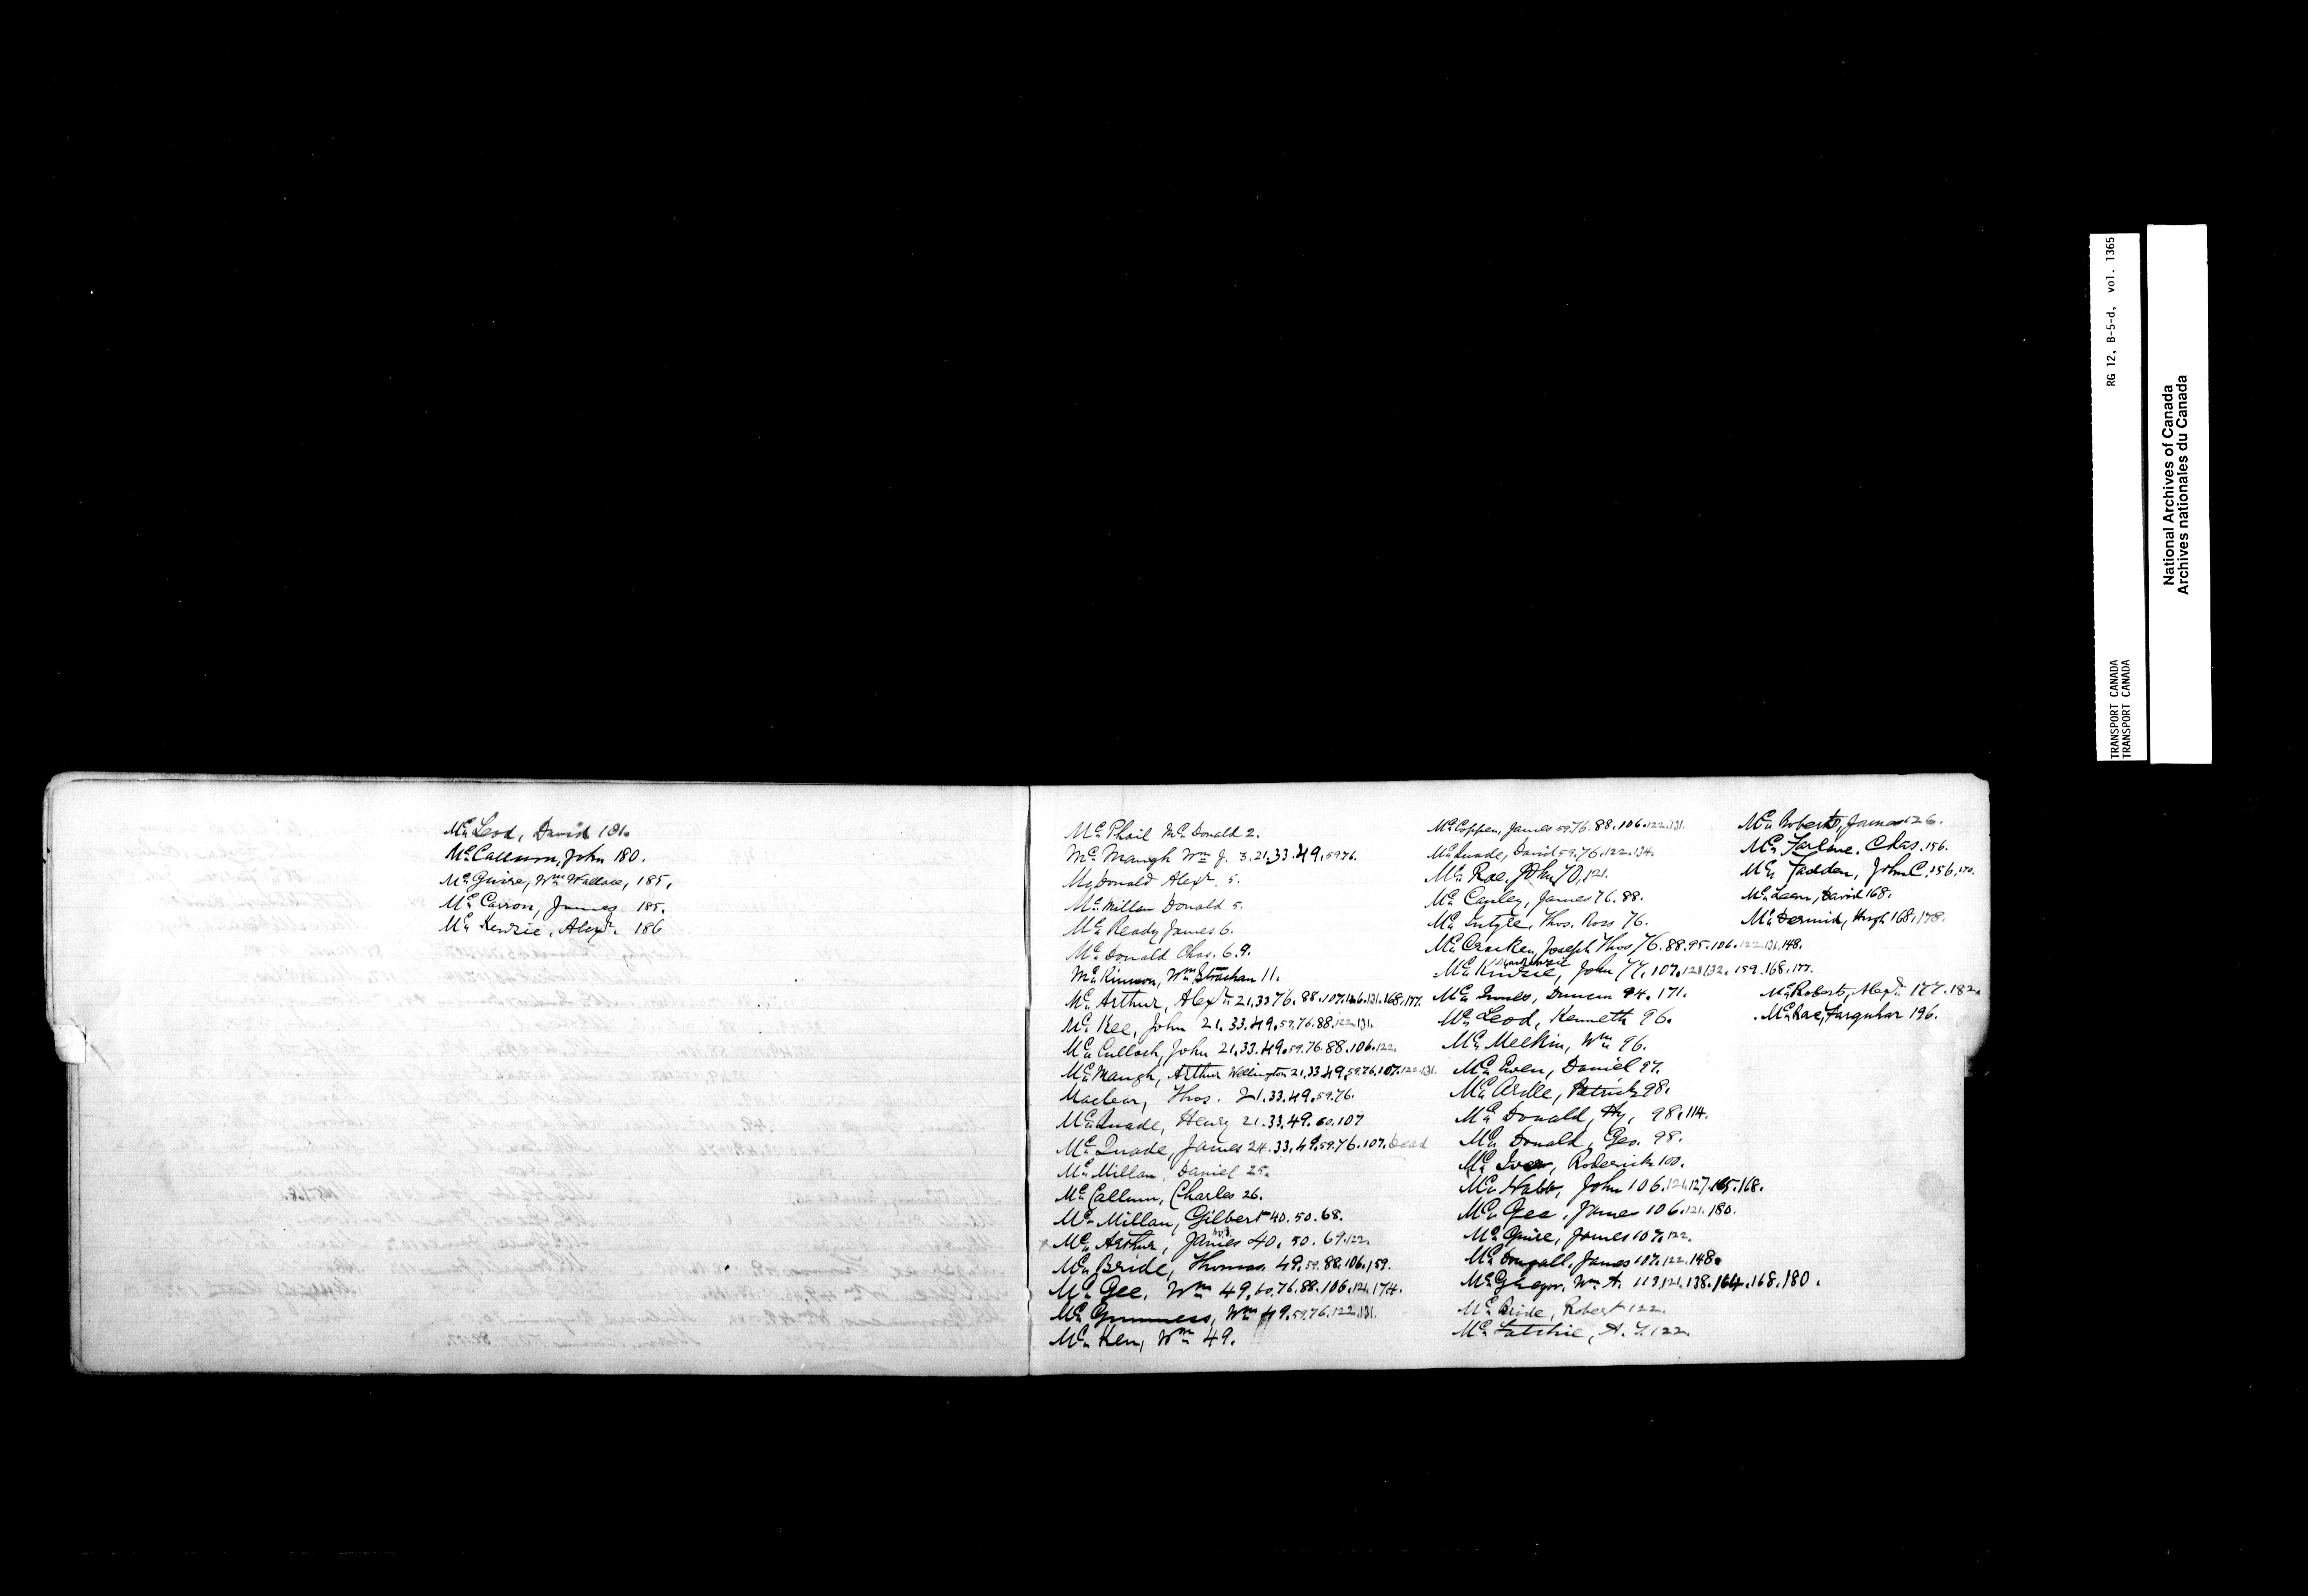 Mc Leod, David 181.
Mc Callum, John 180.
Mc Guire, Wm Wallace, 185.
Mc Carron, James 185.
Mc Kenzie, Alexr. 186
Mc Phail Mc Donald 2.
Mc Maugh Wm J. 3.21.33.49.59.76.
Mc Donald Alexr. 5.
Mc Millan Donald 5.
Mc Ready James 6.
Mc Donald Chas. 6.9.
Mc Kinnon, Wm Strachan 11.
Mc Arthur, Alexr. 21.33.76.88.107.126.131.168.177.
Mc Kee, John 21.33.49.59.76.88.122.131.
Mc Culloch, John 21.33.49.59.76.88.106.122.
Mc Maugh, Arthur Wellington 21.33.49.59.76.107.122.131.
Maclear, Thos. 21.33.49.59.76.
Mc Quade, Henry 21.33.49.60.107
Mc Quade, James 24.33.49.59.76.107. Dead
Mc Millan, Daniel 25.
Mc Callum, Charles 26.
Mc Millan, Gilbert 40.50.68.
x Mc Arthur, James 40.50.69.122.
Mc Bride, Thomas 49.59.88.106.159.
Mc Gee, Wm 49.60.76.88.106.121.174.
Mc Guinness, Wm 49.59.76.122.131.
Mc Ken, Wm 49.
Mc Coppen, James 59.76.88.106.122.131.
Mc Quade, David 59.76.122.134.
Mc Rae, John 70.121.
Mc Cauley, James 76.88.
Mc Intyre, Thos. Ross 76.
Mc Cracken, Joseph Thos 76.88.95.106.122.131.148.
Mc Kenzie, John 77.107.121.132.159.168.177.
Mc Innes, Duncan 94.171.
Mc Leod, Kenneth 96.
Mc Meekin, Wm 96.
Mc Ewen, Daniel 97.
Mc Ardle, Patrick 98.
Mc Donald, Hy, 98.114.
Mc Donald, Geo. 98.
Mc Iver, Roderick 100.
Mc Nabb, John 106.121.127.165.168.
Mc Gee, James 106.121.180.
Mc Guire, James 107.122.
Mc Dougall, James 107.122.148.
Mc Gregor, Wm A. 113.121.138.164.168.180.
Mc Bride, Robert 122.
Mc Latchie, A. Y. 122.
Mc Roberts, James 126.
Mc Farlane, Chas. 156.
Mc Fadden, John C. 156.170.
Mc Lean, David 168.
Mc Dermid, Hugh 168.178.
Mc Roberts, Alexr. 177.182.
Mc Rae, Farquhar 196.
RG 12, B-5-d, vol. 1365
TRANSPORT CANADA
TRANSPORT CANADA
National Archives of Canada
Archives nationales du Canada